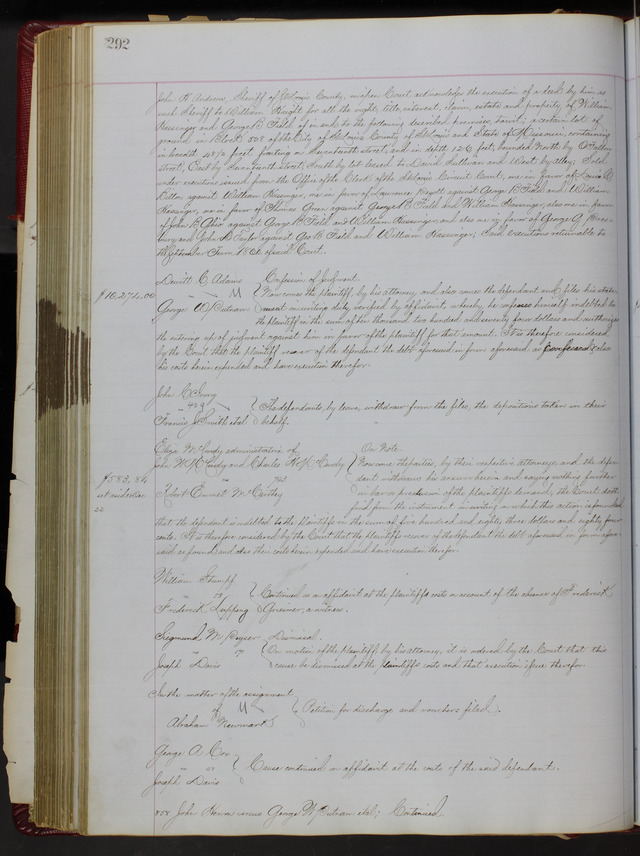 292
John H. Andrew, Sheriff of St Louis County, in open Court acknowledges the execution of a deed by him as
such Sheriff to William Knight for all the right, title, interest, claim, estate and property of William
Rassinger and George B. Field of in and to the following described premises, towit; a certain lot of
ground in Block 508 of the City of St Louis County of St Louis and State of Missouri, containing
in breadth feet, fronting on Seventeenth street, and in depth 126 feet, bounded North by O'Fallon
street, East by Seventeenth street, South by lot leased to David Sullivan and West by alley; Sold
under executions issued from the Office of the Clerk of the St Louis Circuit Court, one in favor of
against William Rassinger, one in favor of Lawrence against George B. Field and William
Rassinger, one in favor of Thomas Green against George B. Field and William Rassinger, also one in favor
of John B. against George B. Field and William Rassinger and also one in favor of George G.
and John H. Taylor against Geo B. Field and William Rassinger; Said executions returnable to
the September Term 1866 of said Court.
Dewitt C. Adams Confession of Judgment.
$10,274.00
Now comes the plaintiff, by his attorney, and also comes the defendant and files his state-
George W. Putnam ment in writing duly verified by affidavit, whereby he confesses himself indebted to
the plaintiff in the sum of ten thousand two hundred and seventy four dollars and authorizes
the entering up of judgment against him in favor of the plaintiff for that amount. It is therefore considered
by the Court that the plaintiff recover of the defendant the debt aforesaid in form aforesaid as confessed & also
his costs herein expended and have execution therefor.
John C. Ivory
429 The defendants, by leave, withdraw from the files, the depositions taken in their
Francis Smith et al. behalf.
Eliza McCurdy administratrix of On Note
John W. McCurdy and Charles K. McCurdy Now come the parties, by their respective attorneys, and the defen-
$583.84 dant withdraws his answer herein and saying nothing further
Robert Emmet McCarthy in bar or preclusion of the plaintiffs demand, the Court doth
find from the instrument in writing on which this action is founded
that the defendant is indebted to the plaintiffs in the sum of five hundred and eighty three dollars and eighty four
cents. It is therefore considered by the Court that the plaintiffs recover of the defendant the debt aforesaid in form afore-
said as found, and also their costs herein expended and have execution therefor.
William Stumpf
Continued on affidavit at the plaintiffs costs on account of the absence of Frederick
Frederick Greiner, a witness.
Sigmund M. Dismissal.
On motion of the plaintiff by his attorney, it is ordered by the Court that this
Joseph Davis cause be dismissed at the plaintiffs costs and that execution issue therefor.
In the matter of the assignment
of Petition for discharge and vouchers filed.
Abraham Newmark
George A. Cox
Cause continued on affidavit at the costs of the said defendant.
Joseph Davis
858 John versus George W. Putnam et al; Continued.